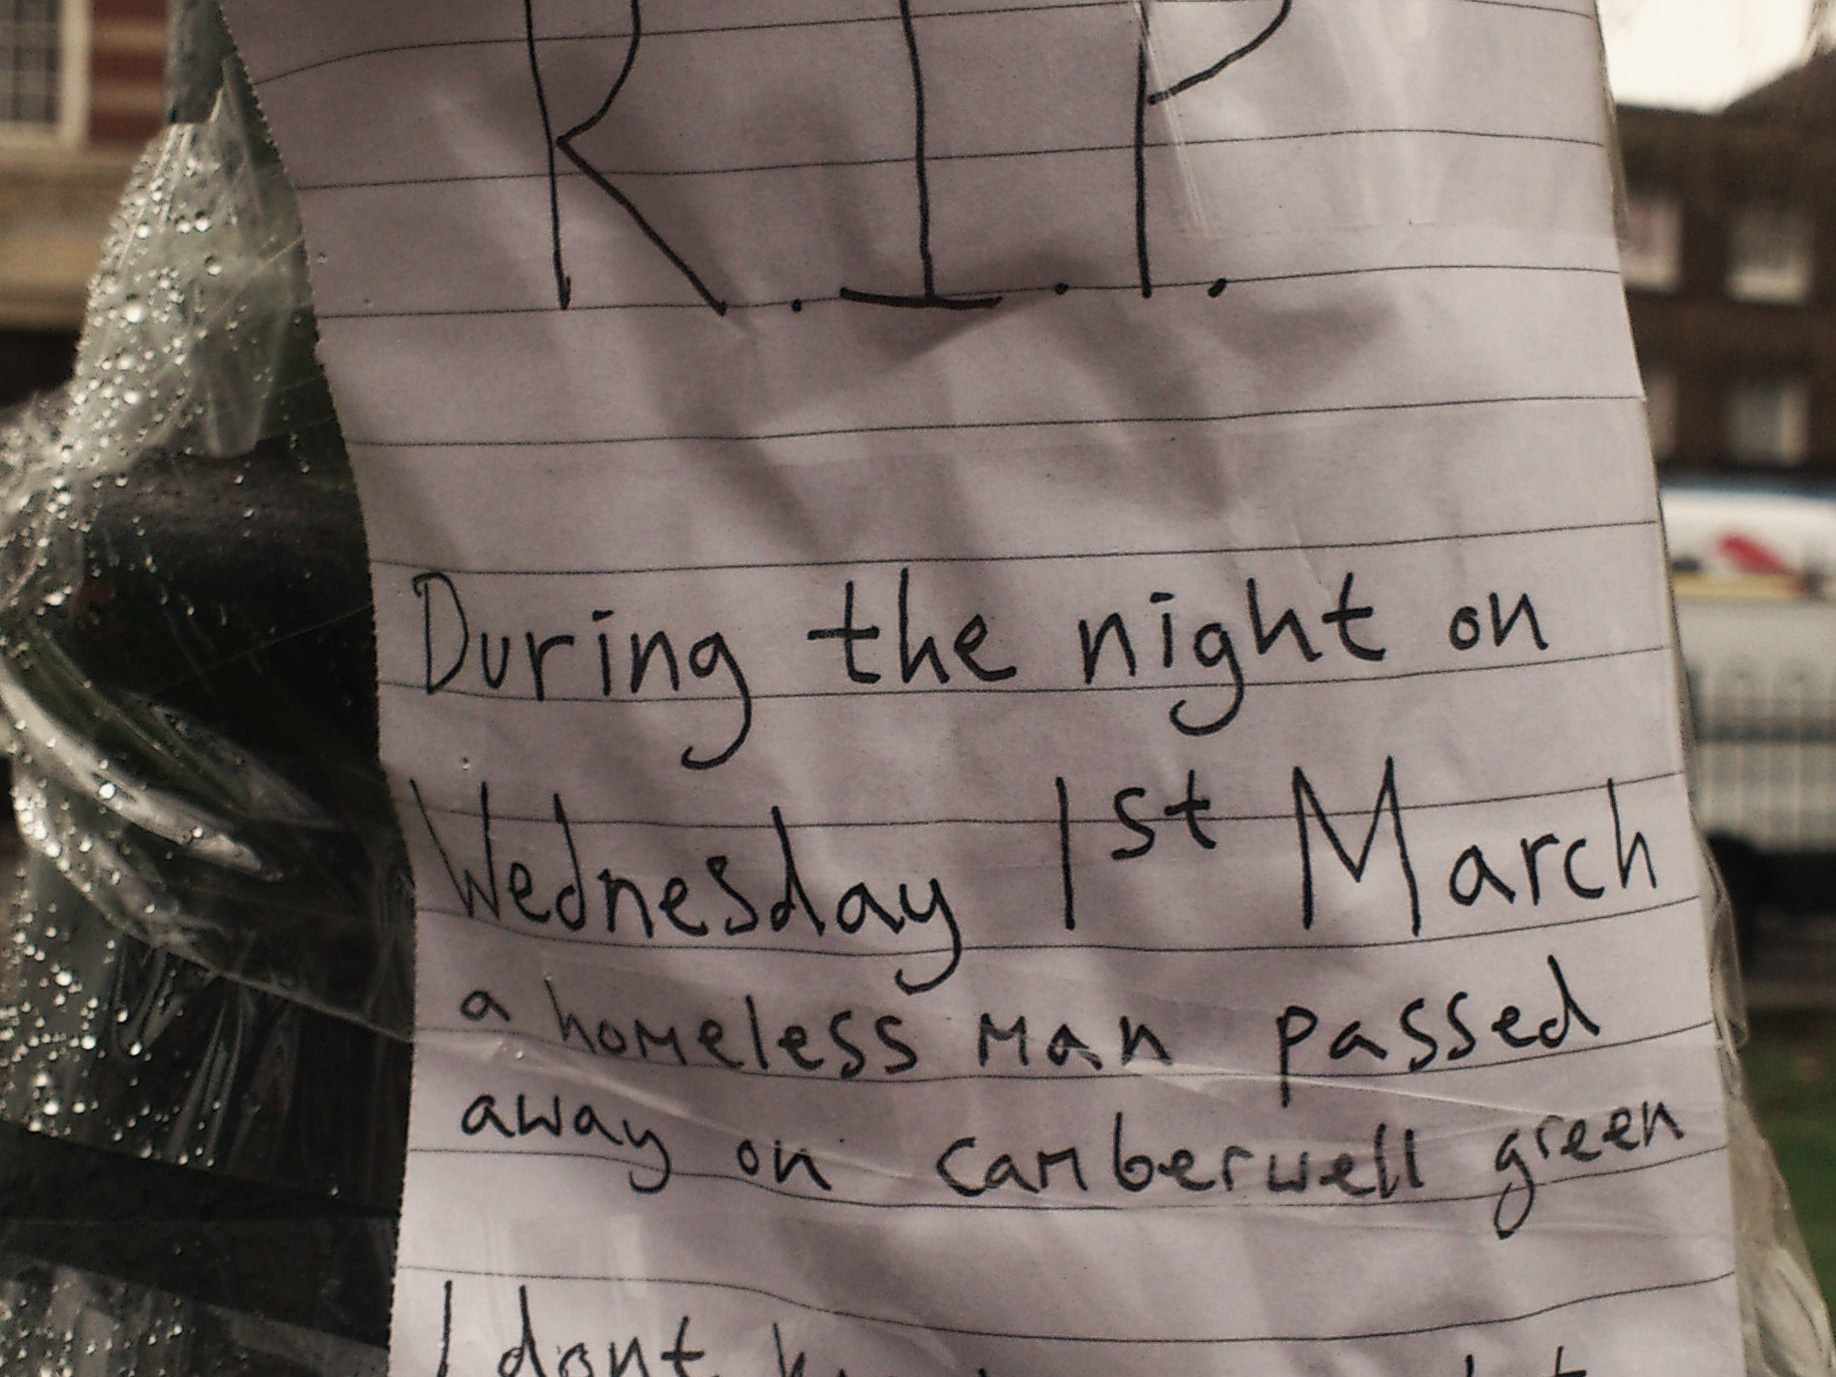 R.I.P.
During the night on
Wednesday 1st March
a homeless man passed
away on camberwell green
I dont